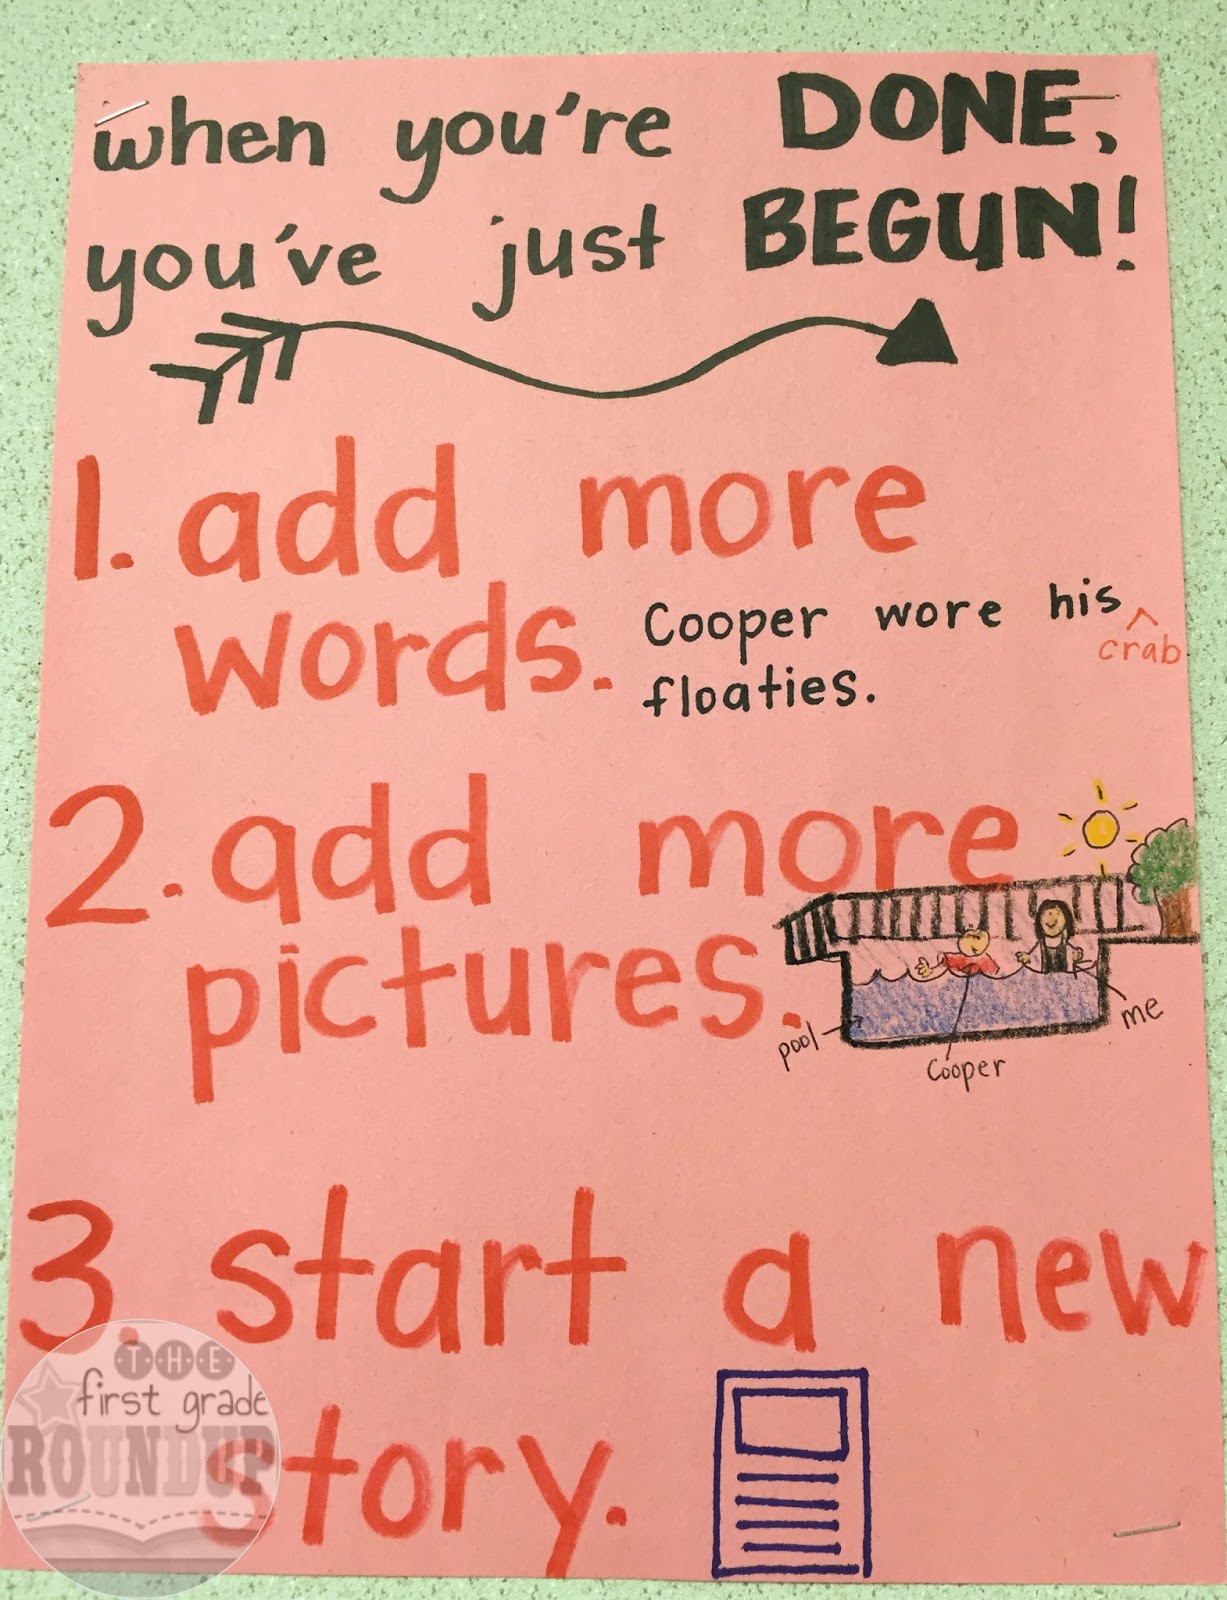 when you're DONE,
you've just BEGUN!
1. add more
words.
Cooper wore his ^
crab
floaties.
2. add more
pictures.
pool
Cooper
me
3 start a new
story.
THE
first grade
ROUNDUP